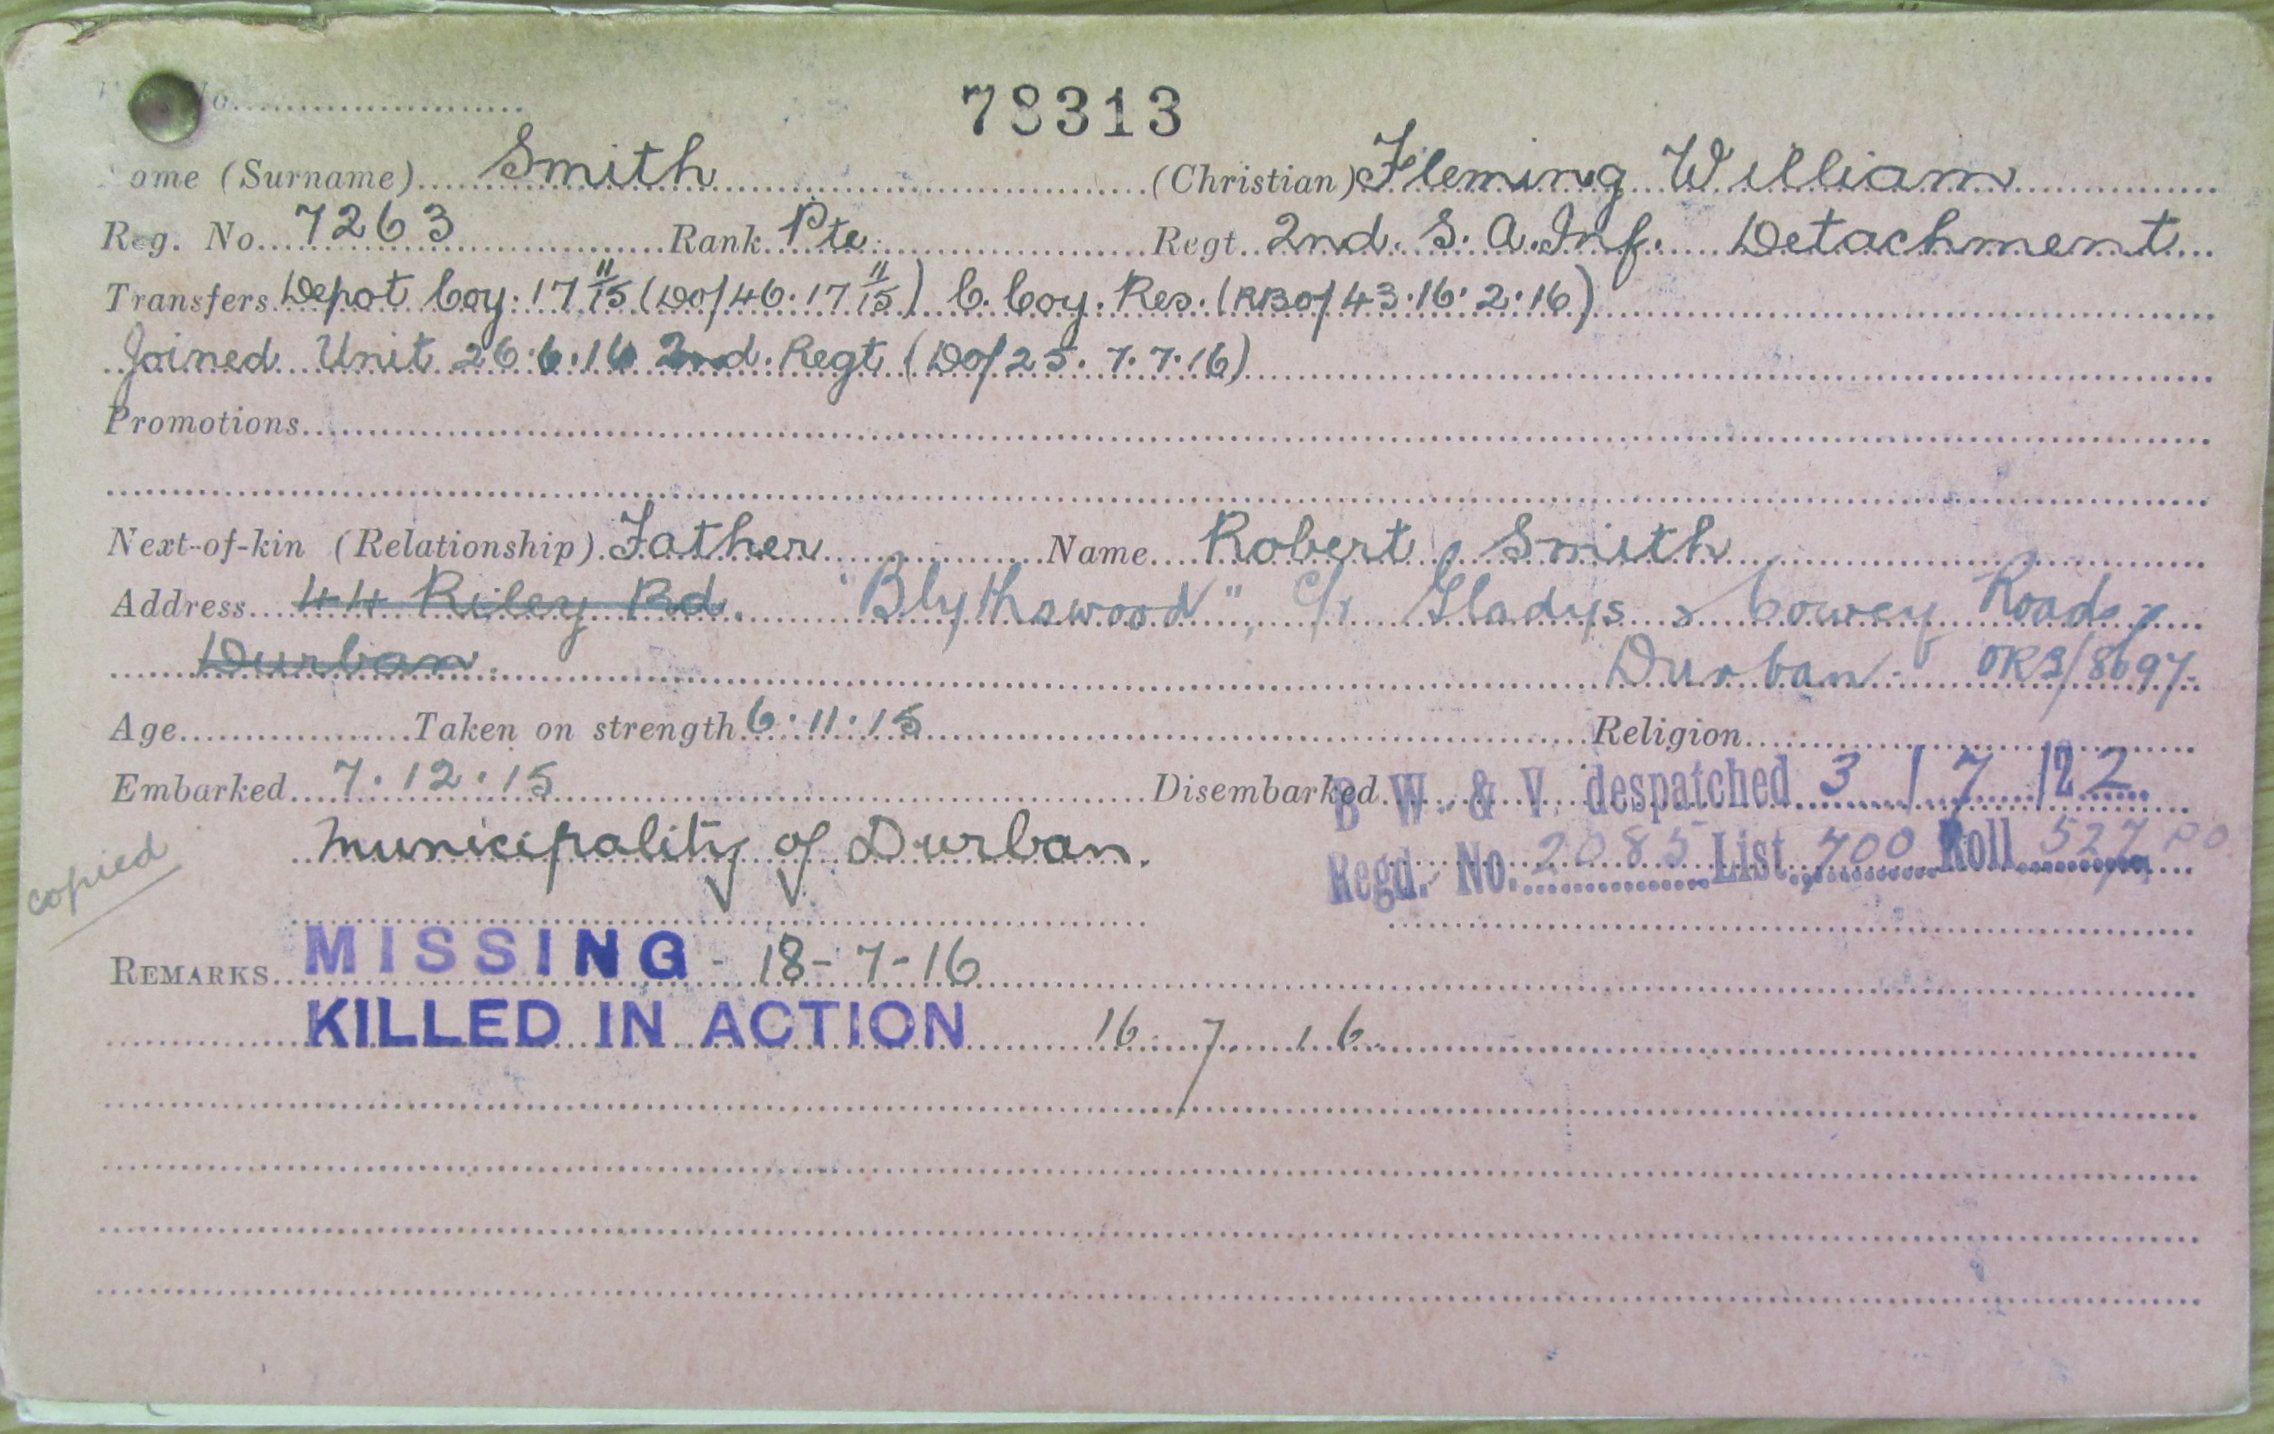 No
78313
ome (Surname) Smith (Christian) Fleming William
Reg. No. 7263 Rank Pte. Regt. 2nd. S. A. Inf. Detachment
Transfers Depot Coy. 17 11/15 (DO/46. 17 11/15) C. Coy. Res. (RBO/43. 16. 2. 16)
Joined Unit 26. 6. 16 2nd. Regt (DO/25. 7. 7. 16)
Promotions
Next-of-kin (Relationship) Father Name Robert Smith
Address 44 Riley Rd. "Blythswood", c/r Gladys & Cowey Roads,
Durban. Durban. OR3/8697.
Age Taken on strength 6. 11. 15 Religion
Embarked 7. 12. 15 Disembarked B W. & V. despatched 3 / 7 /22
Municipality of Durban. Regd. No. 2085 List 700 Roll 527
copied
REMARKS MISSING - 18-7-16
KILLED IN ACTION 16. 7. 16.